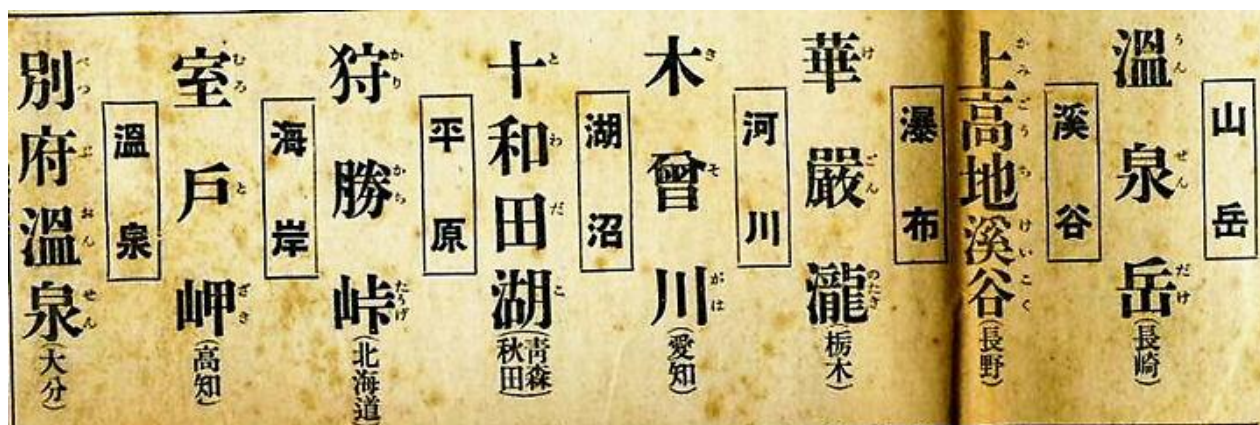 山岳
溫泉岳(長崎)
うんぜんだけ
溪谷
上高地溪谷(長野)
かみごうちけいこく
瀑布
華嚴瀧(栃木)
けごんのたき
河川
木曾川(愛知)
きそがは
湖沼
十和田湖(靑森秋田)
とわだこ
平原
狩勝峠(北海道)
かりかちたうげ
海岸
室戶岬(高知)
むろとざき
溫泉
別府溫泉(大分)
べつぷおんせん